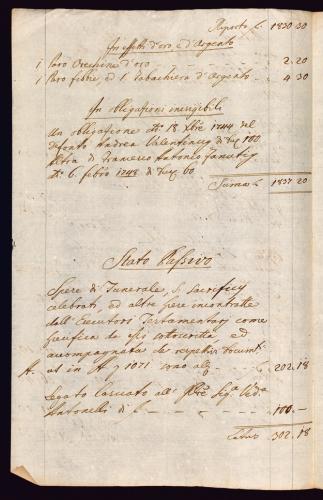 Riporto f. 1830.30
In effetti d'oro, e d'Argento
1 Paro Orechine d'oro - - - 2.20
1 Paro fibie, ed 1 Tabachiera d'Argento - - 4.30
In obligazioni inesigibili
Un obligazione dto 18 Xbre 1744 del
defonto Andrea Valentincig di 100
altra di Francesco Antonio
dto 6 febrio 1748 di 60
Suma f. 1837.20
Stato Passivo
Spese di Funerale, S. Sacrificij
celebrati, ed altre spese incontratte
dall Esecutori Testamentarj come
specifica da essi sottoscritta, ed
accompagnata de rispettivi Documti
A. ut in A 1071 - - - 202.18
Legato lasciato all' Sigra Veda
Antonelli di f. - - - 100.-
Latus 302.18